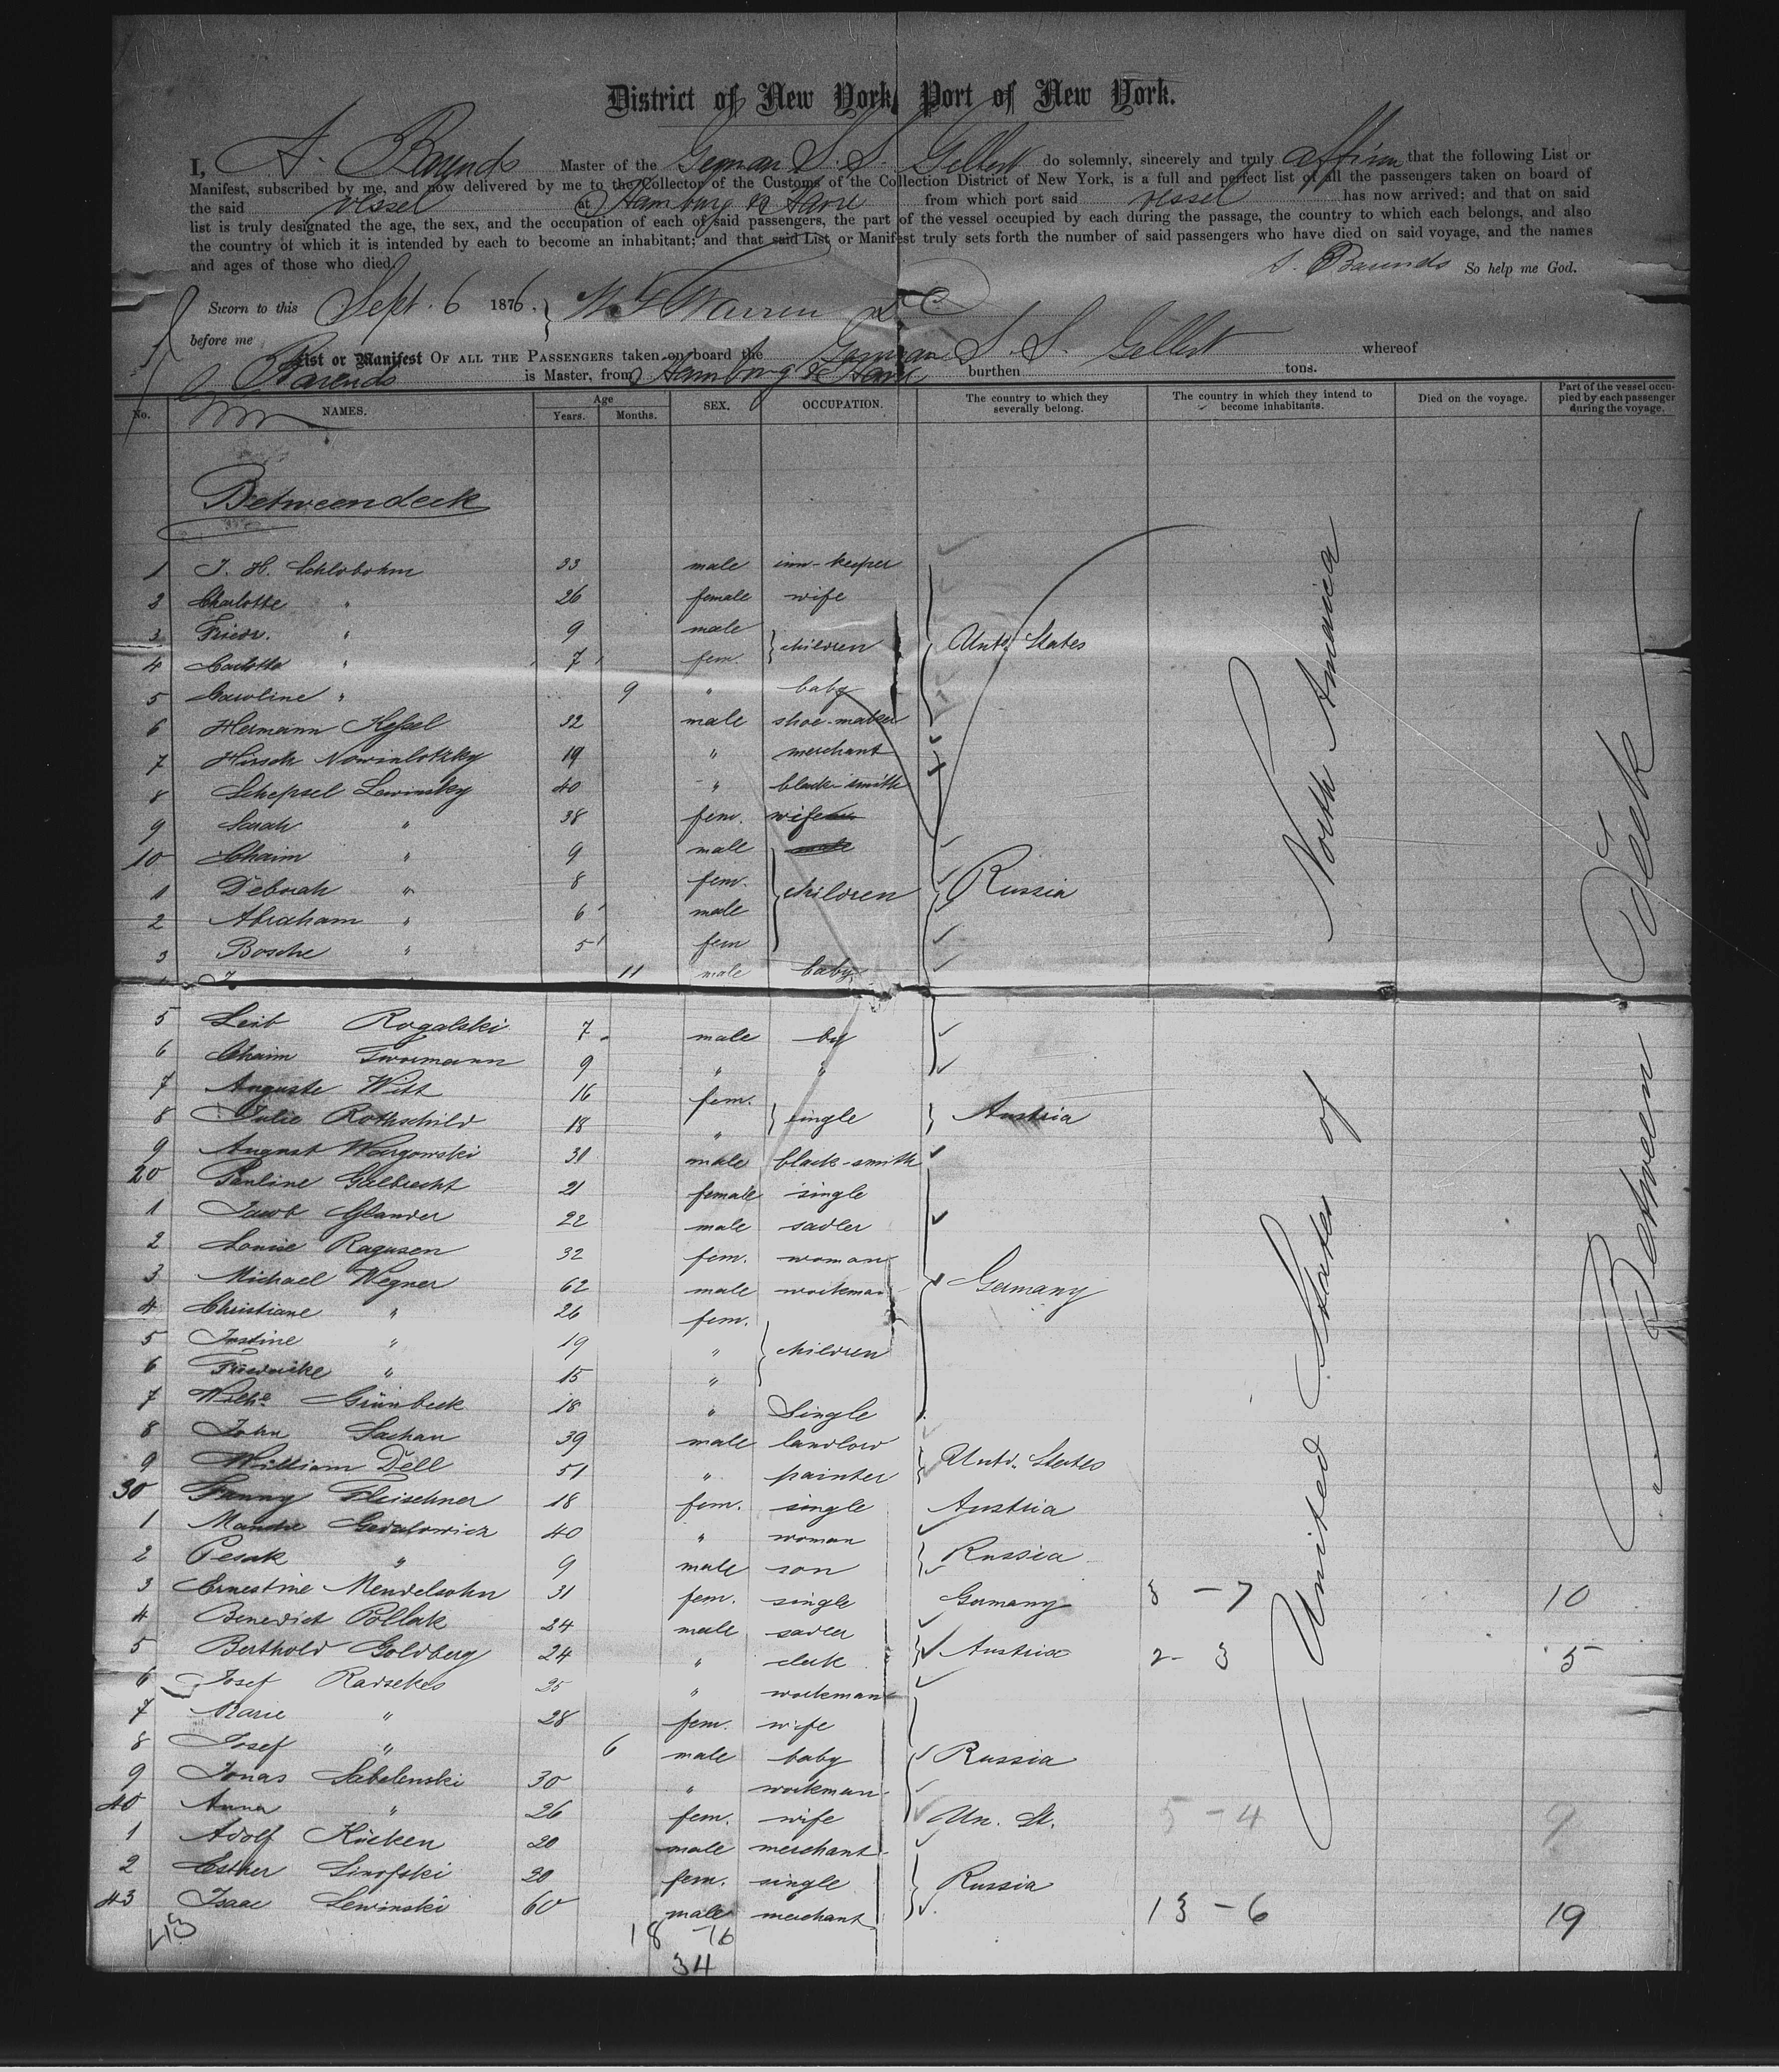 District of New York, Port of New York.
I, A. Barends Master of the German S. S. Gellert do solemnly, sincerely and truly affirm that the following List or
Manifest, subscribed by me, and now delivered by me to the Collector of the Customs of the Collection District of New York, is a full and perfect list of all the passengers taken on board of
the said vessel at Hamburg & Havre from which port said vessel has now arrived; and that on said
list is truly designated the age, the sex, and the occupation of each of said passengers, the part of the vessel occupied by each during the passage, the country to which each belongs, and also
the country of which it is intended by each to become an inhabitant; and that said List or Manifest truly sets forth the number of said passengers who have died on said voyage, and the names
and ages of those who died.
A. Barends So help me God.
Sworn to this Sept. 6 1876.
before me
List or Manifest OF ALL THE PASSENGERS taken on board the German S. S. Gellert whereof
Barends is Master, from Hamburg & Havre burthen tons.
No. NAMES. Age Years. Months. SEX. OCCUPATION. The country to which they severally belong. The country in which they intend to become inhabitants. Died on the voyage. Part of the vessel occupied by each passenger during the voyage.
Betweendeck
1 J. H. Schlobohm 33 male inn-keeper
2 Charlotte " 26 female wife
3 Friedr. " 9 male
4 Carlotta " 7 fem. children Untd. States
5 Caroline " 9 " baby
6 Hermann Kessel 32 male shoe-maker
7 Hirsch 19 " merchant
8 Schepsel Lewinsky 40 " black-smith
9 Sarah " 38 fem. wife
10 Chaim " 9 male
1 Deborah " 8 fem. children Russia
2 Abraham " 6 male
3 Bosche " 5 fem
11 male baby
5 Leib Rogalski 7 male boy
6 Chaim 9 " "
7 Auguste Witt 16 fem.
8 Julie Rothschild 18 " single Austria
9 August Wargowski 31 male black-smith
20 Pauline Galbrecht 21 female single
1 Jacob Glander 22 male sadler
2 Louise Ragusen 32 fem. woman
3 Michael Wegner 62 male workman Germany
4 Christiane " 26 fem.
5 Justine " 19 " children
6 Friedricke " 15 "
7 Wilhe. Grünbeck 18 " Single
8 John Sachau 39 male landlord
9 William Dell 51 " painter Untd. States
30 Fanny Fleischner 18 fem. single Austria
1 Gedalowicz 40 " woman
2 Pesak " 9 male son Russia
3 Ernestine Mendelsohn 31 fem. single Germany 3 - 7 10
4 Benedict Pollak 34 male sadler
5 Berthold Goldberg 24 " clerk Austria 2 - 3 5
6 Josef Radsekes 25 " workman
7 Marie " 28 fem. wife
8 Josef " 6 male baby Russia
9 Jonas Sabelenski 30 " workman
40 Anna " 26 fem. wife Un. St. 5 - 4 9
1 Adolf Kücken 20 male merchant
2 Esther Sinofski 20 fem. single Russia
43 Isaac Lewinski 60 male merchant 13 - 6 19
43 18 - 16
34
United States of North America
Between Deck